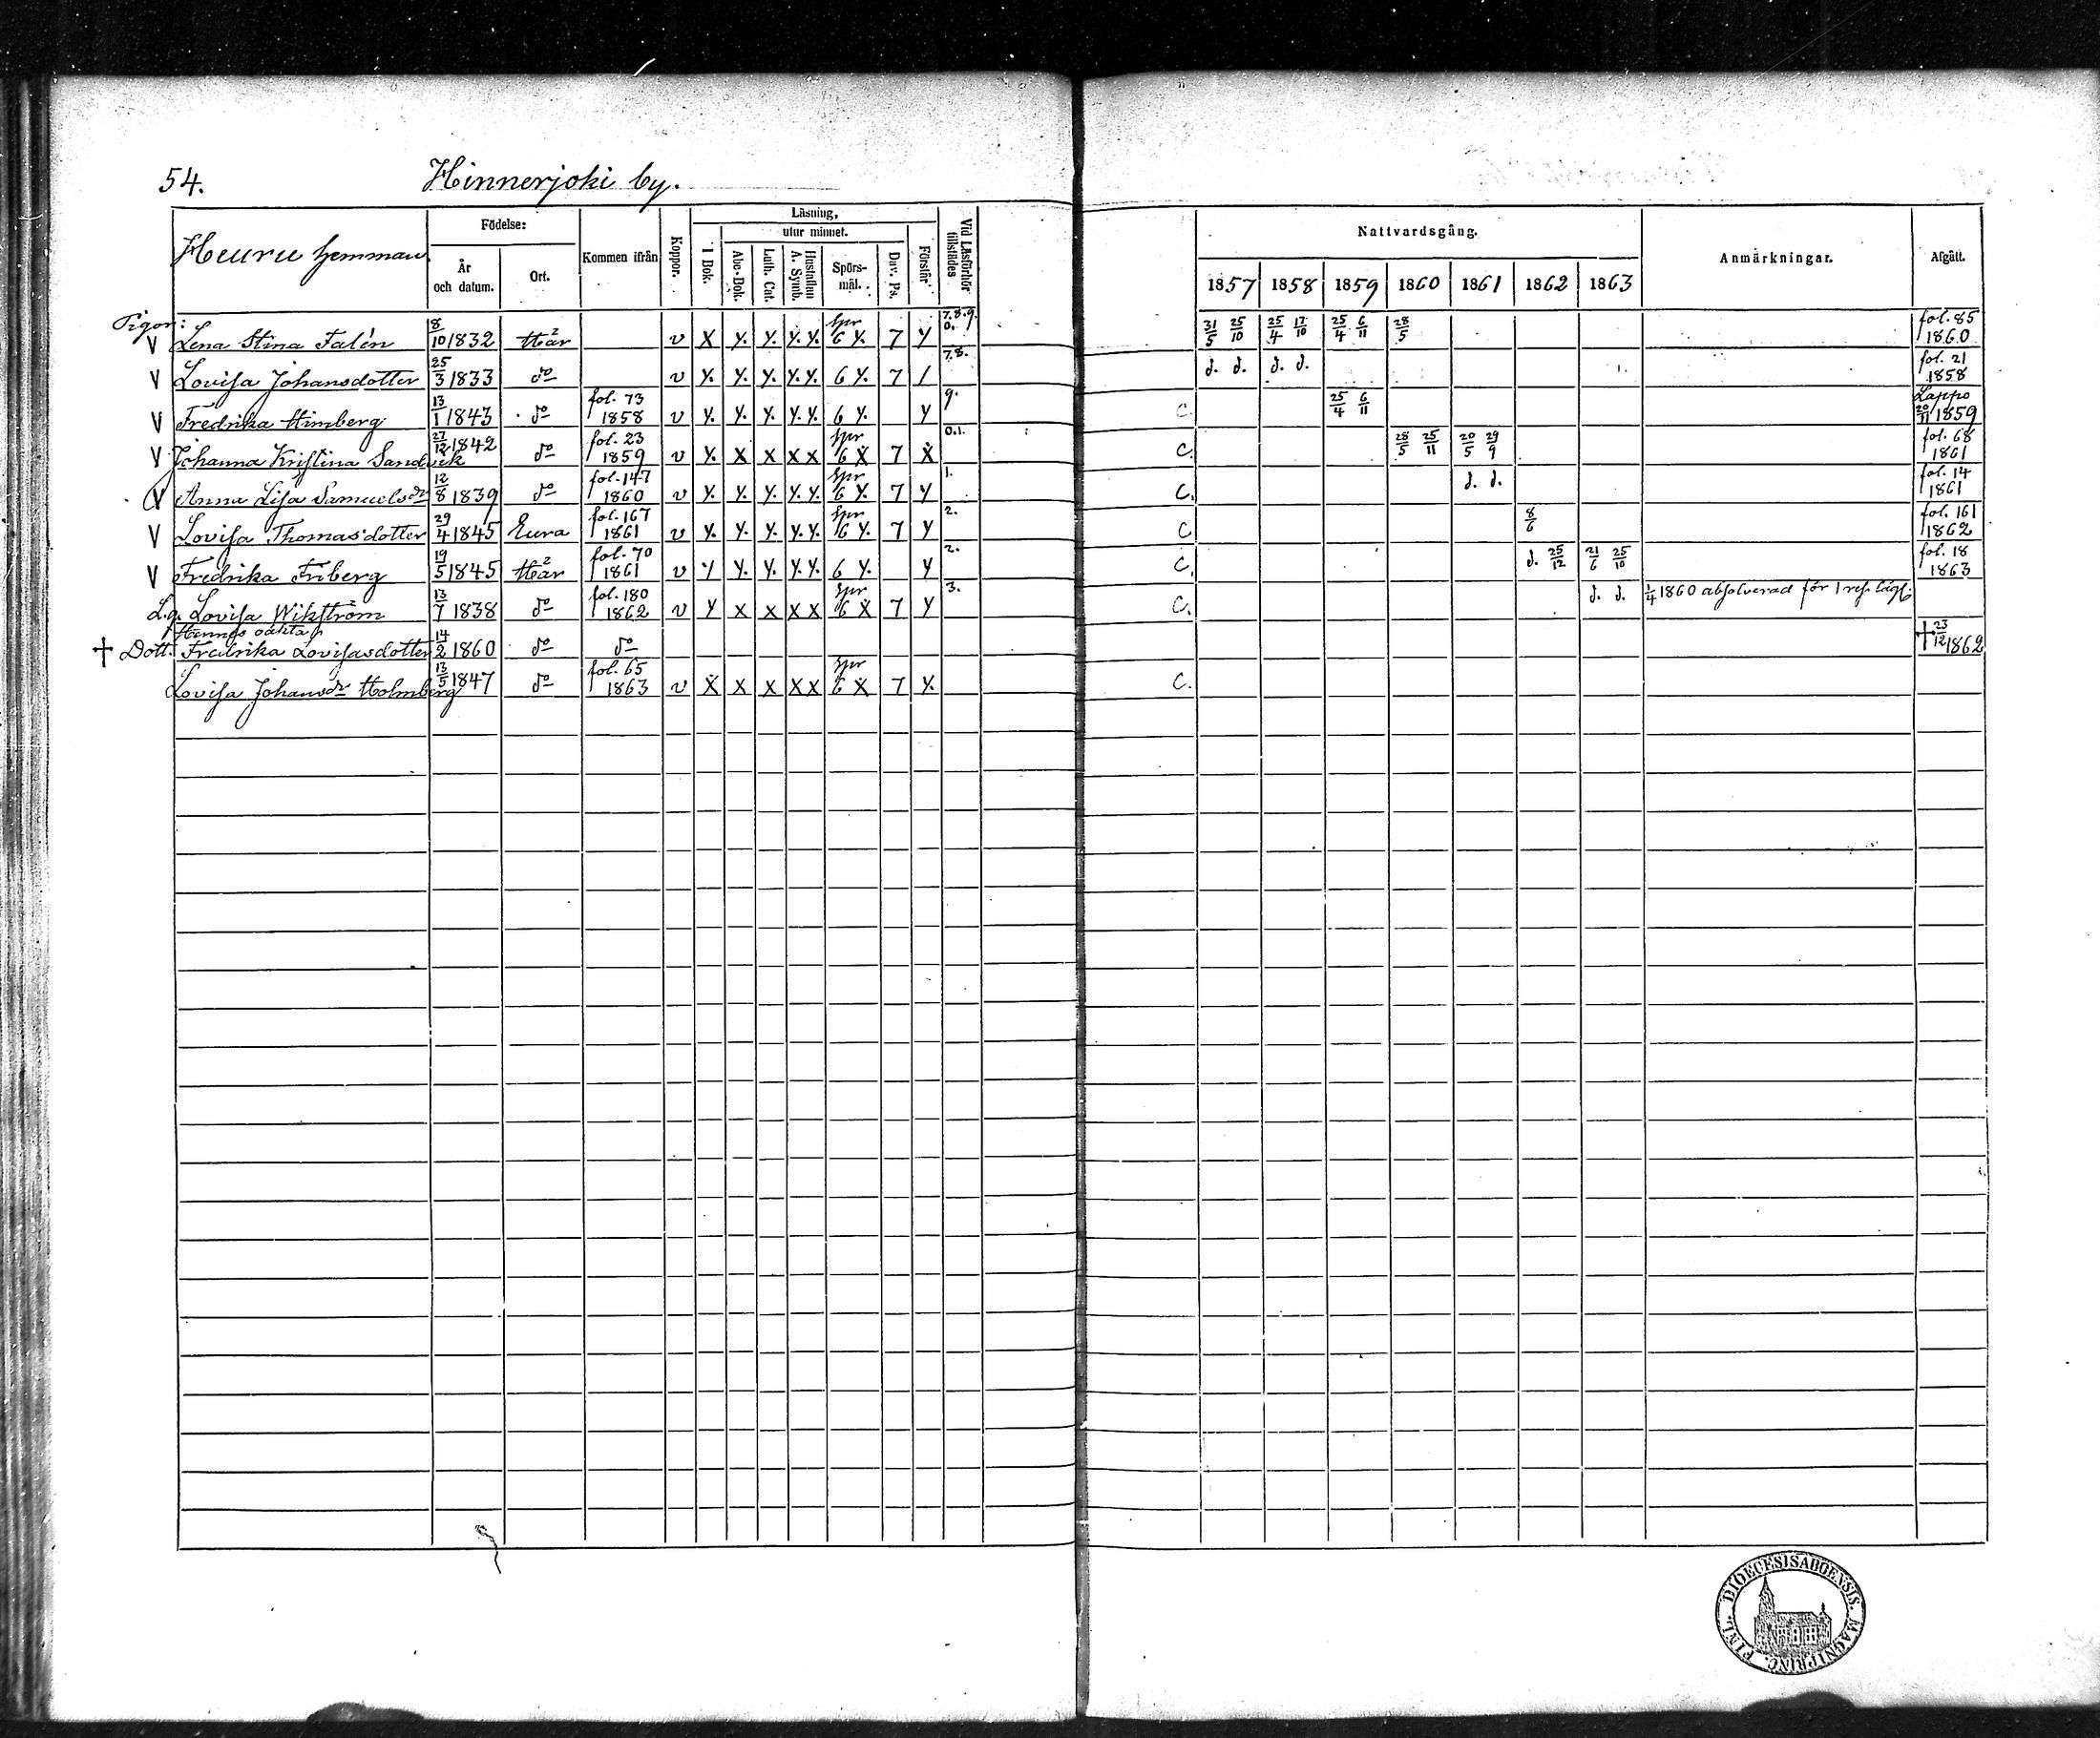 54. Hinnerjoki by.
Heuru hemman
Födelse:
År och datum.
Ort.
Kommen ifrån
Koppor.
Läsning,
I Bok.
utur minnet.
Abc-Bok.
Luth. Cat.
Hustaflan A. Symb.
Spörs-mål.
Dav. Ps.
Förstår
Vid Läsförhör tillstädes
Nattvardsgång.
1857 1858 1859 1860 1861 1862 1863
Anmärkningar.
Afgått.
Pigor:
V Lena Stina Falén 8/10 1832 Här v X y. y. y. y. spr 6 y. 7 y 7.8.9. 0. 31/5 25/10 25/4 17/10 25/4 6/11 28/5 fol. 85 1860
V Lovisa Johansdotter 25/3 1833 do v y. y. y. y. y. 6 y. 7 / 7.8. d. d. d. d. fol. 21 1858
V Fredrika Himberg 13/1 1843 do fol. 73 1858 v y. y. y. y. y. 6 y. y 9. C. 25/4 6/11 Lappo 20/11 1859
V Johanna Kristina Sandvik 27/12 1842 do fol. 23 1859 v y. x x x x spr 6 x 7 x 0.1. C. 28/5 25/11 20/5 29/9 fol. 68 1861
V Anna Lisa Samuelsdr 12/8 1839 do fol. 147 1860 v y. y. y. y. y. spr 6 y. 7 y 1. C. d. d. fol. 14 1861
V Lovisa Thomasdotter 29/4 1845 Eura fol. 167 1861 v y. y. y. y. y. spr 6 y. 7 y 2. C 8/6 fol. 161 1862
V Fredrika Friberg 19/5 1845 Här fol. 70 1861 v y y. y. y. y. 6 y. y 2. C. d. 25/12 21/6 25/10 fol. 18 1863
L.q. Lovisa Wikström 13/7 1838 do fol. 180 1862 v y x x x x spr 6 x 7 y 3. C. d. d. 1/4 1860 absolverad för 1 resa lägr.
Hennes oäkta
† Dott. Fredrika Lovisasdotter 14/2 1860 do do † 23/12 1862
Lovisa Johansdr Holmberg 13/5 1847 do fol. 65 1863 v x x x x x spr 6 x 7 y. C.
FINL. DIOECESIS ABOENSIS. MAGNI PRINC.